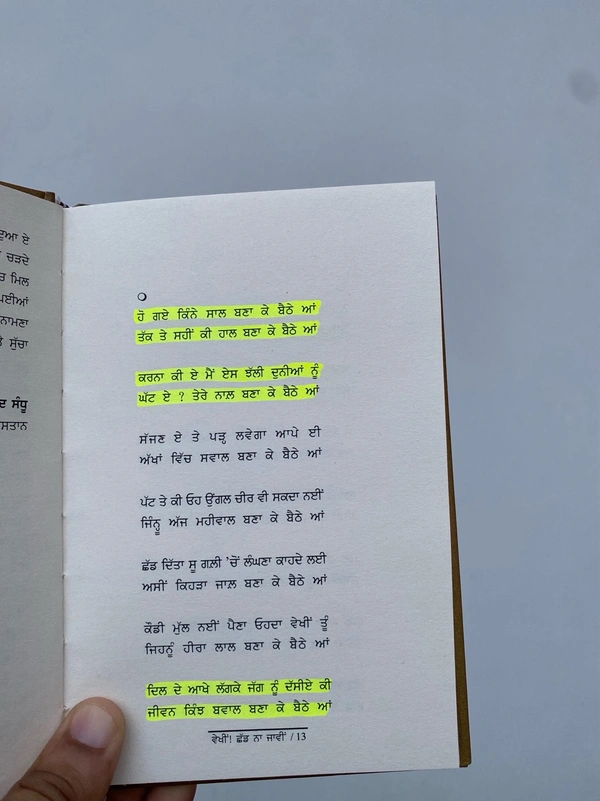 ਦੁਆ ਏ
ਚੜਦੇ
ਮਿਲ
ਪਈਆਂ
ਨਾਮਣਾ
ਸੁੱਚਾ
ਸੰਧੂ
ਹੋ ਗਏ ਕਿੰਨੇ ਸਾਲ ਬਣਾ ਕੇ ਬੈਠੇ ਆਂ
ਤੱਕ ਤੇ ਸਹੀਂ ਕੀ ਹਾਲ ਬਣਾ ਕੇ ਬੈਠੇ ਆਂ
ਕਰਨਾ ਕੀ ਏ ਮੈਂ ਏਸ ਝੱਲੀ ਦੁਨੀਆਂ ਨੂੰ
ਘੱਟ ਏ ? ਤੇਰੇ ਨਾਲ਼ ਬਣਾ ਕੇ ਬੈਠੇ ਆਂ
ਸੱਜਣ ਏ ਤੇ ਪੜ੍ਹ ਲਵੇਗਾ ਆਪੇ ਈ
ਅੱਖਾਂ ਵਿੱਚ ਸਵਾਲ ਬਣਾ ਕੇ ਬੈਠੇ ਆਂ
ਪੱਟ ਤੇ ਕੀ ਓਹ ਉਂਗਲ ਚੀਰ ਵੀ ਸਕਦਾ ਨਈਂ
ਜਿੰਨ੍ਹੂ ਅੱਜ ਮਹੀਵਾਲ ਬਣਾ ਕੇ ਬੈਠੇ ਆਂ
ਛੱਡ ਦਿੱਤਾ ਸੂ ਗਲ਼ੀ 'ਚੋਂ ਲੰਘਣਾ ਕਾਹਦੇ ਲਈ
ਅਸੀਂ ਕਿਹੜਾ ਜਾਲ਼ ਬਣਾ ਕੇ ਬੈਠੇ ਆਂ
ਕੌਡੀ ਮੁੱਲ ਨਈਂ ਪੈਣਾ ਓਹਦਾ ਵੇਖੀਂ ਤੂੰ
ਜਿਹਨੂੰ ਹੀਰਾ ਲਾਲ ਬਣਾ ਕੇ ਬੈਠੇ ਆਂ
ਦਿਲ ਦੇ ਆਖੇ ਲੱਗਕੇ ਜੱਗ ਨੂੰ ਦੱਸੀਏ ਕੀ
ਜੀਵਨ ਕਿੰਝ ਬਵਾਲ ਬਣਾ ਕੇ ਬੈਠੇ ਆਂ
ਵੇਖੀਂ! ਛੱਡ ਨਾ ਜਾਵੀਂ / 13